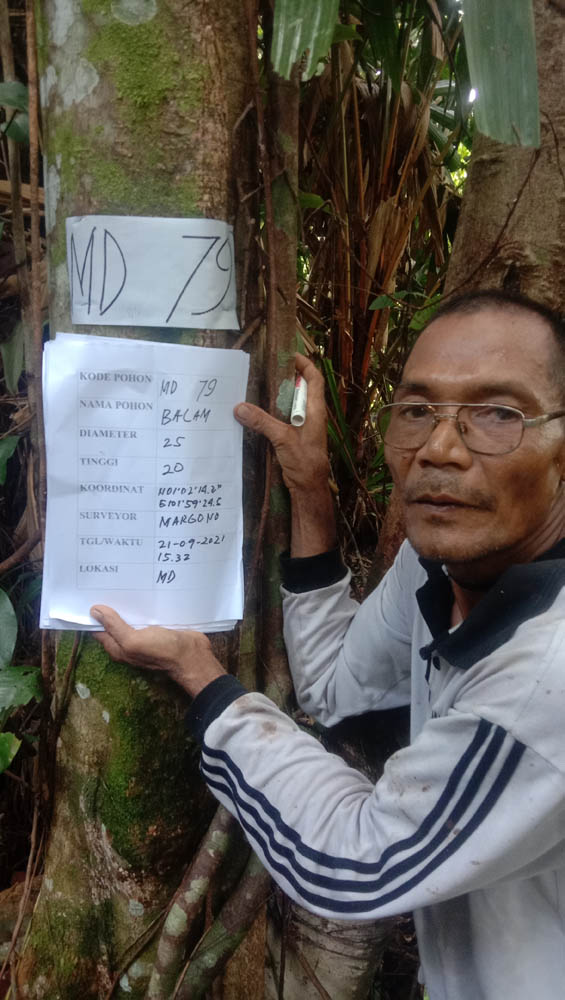 MD 79
KODE POHON MD 79
NAMA POHON BALAM
DIAMETER 25
TINGGI 20
KOORDINAT N01°02'14.2"
E101°59'24.5
SURVEYOR MARGONO
TGL/WAKTU 21-09-2021
15.32
LOKASI MD